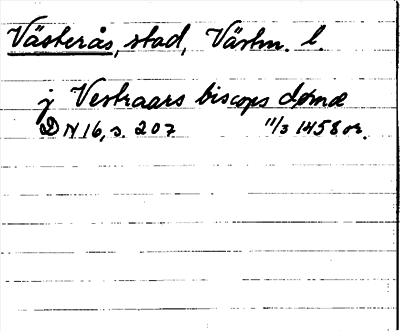 Västerås, stad, Västm. l.
j Vestraars biscops dømæ
DN 16, s. 207 11/3 1458 or.